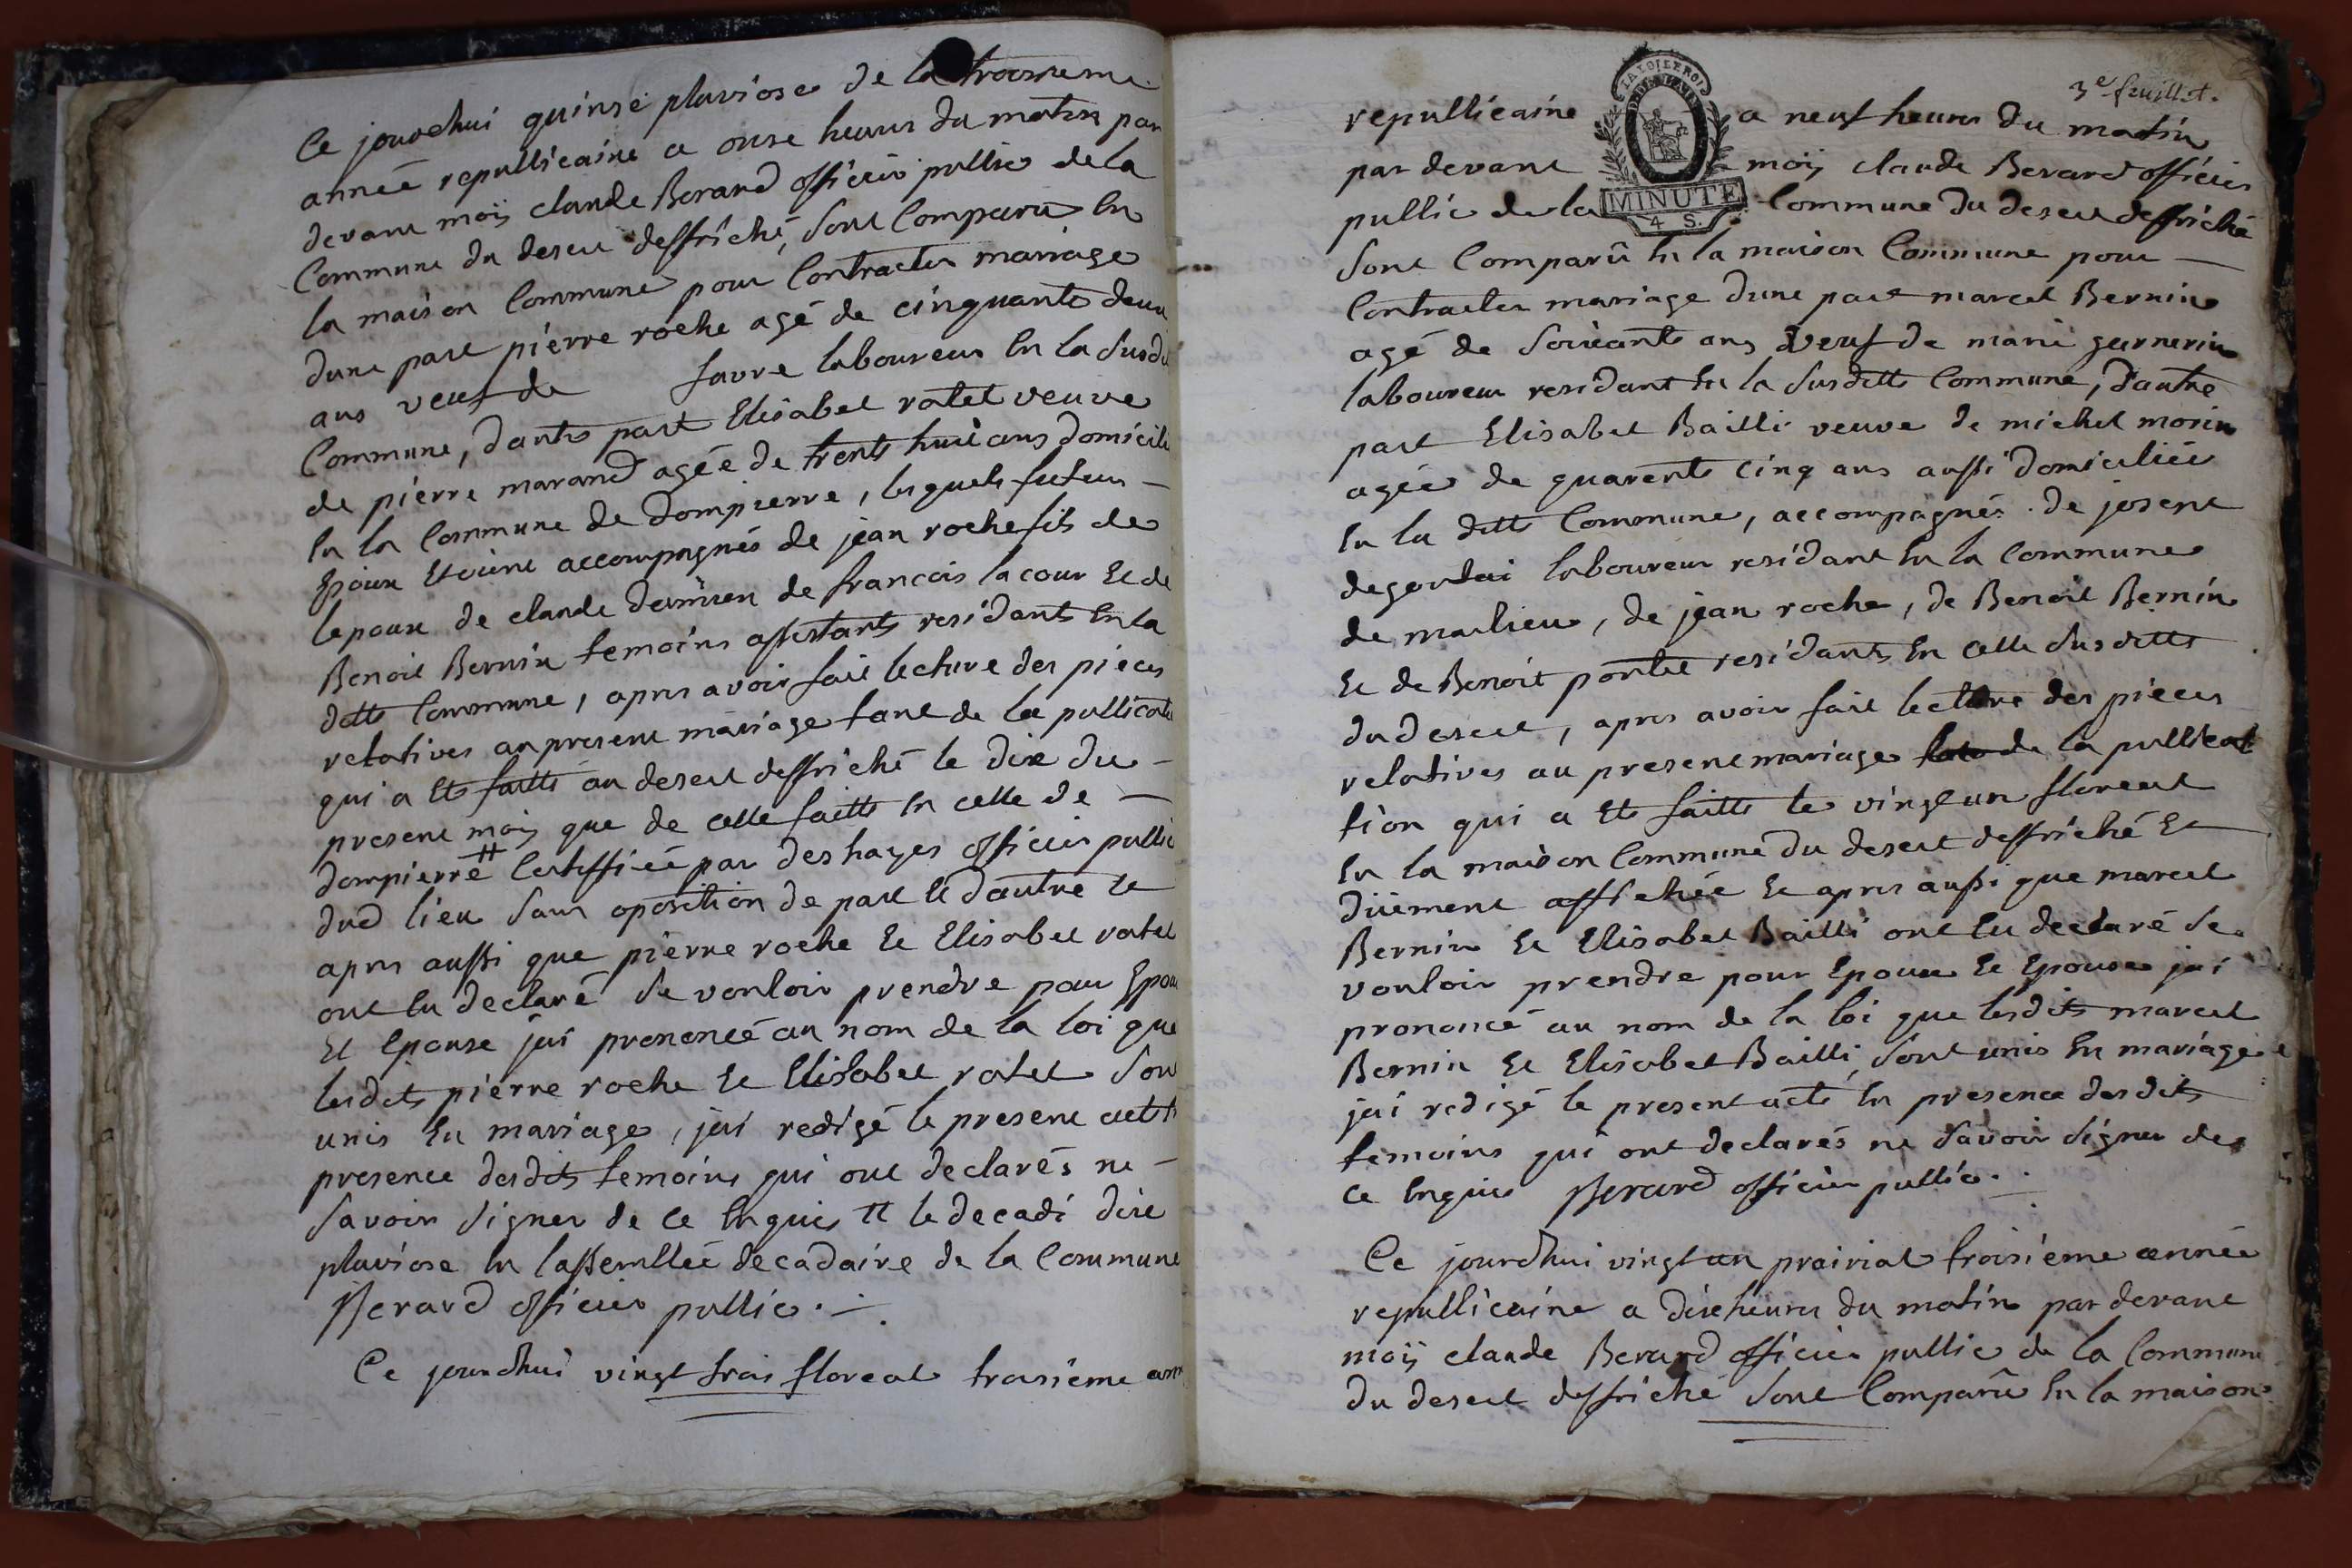 Ce jourdhui quinse pluviose de la troisieme
année republicaine a onse heures du matin par
devant moÿ claude Berard officier public de la
Commune du desert deffriché, Sont Comparu En
la maison Commune pour Contracter mariage
dune part pierre roche agé de cinquante deux
ans veuf de favre laboureur En la Susd
Commune, dautre part Elisabet ratet veuve
de pierre marand agée de trente huit ans domicili
En la Commune de dompierre, lesquels futurs -
Epoux Etoient accompagnés de jean roche fils de
lepoux de claude de francois la cour Et de
Benoit Bernin temoins assistants residants En la
ditte Commune, apres avoir fait lecture des pieces
relatives au present mariage tant de la publicati
qui a Ete faitte au desert deffriché le dix du -
present mois que de celle faitte En celle de -
dompierre # Certiffiée par deshayes officier public
dud lieu Sans oposition de part Et dautre Et
apres aussi que pierre roche Et Elisabet ratet
ont Eu declaré Se vouloir prendre pour Epou
Et Epouse jai prononcé au nom de la loi que
lesdits pierre roche Et Elisabet ratet Son
unis En mariage, jai redigé le present acte
presence desdits temoins qui ont declarés ne -
Savoir Signer de ce Enquis # le decadi dixe
pluviose En lassemblée decadaire de la Commune
Berard officier public.
Ce jourdhui vingt trois floreal troisieme ann
3e feuillet.
LA LOI ET LE ROI
republicaine a neuf heures du matin
par devant moÿ claude Berard officier
MINUTE
public de la Commune du desert deffriché
4 S.
Sont Comparû En la maison Commune pour -
Contracter mariage dune part marcel Bernin
agé de Soixante ans Veuf de marie garnerin
laboureur residant En la Susditte Commune, dautre
part Elisabet Bailli veuve de michel morin
agée de quarente Cinq ans aussi domiciliée
En la ditte Commune, accompagnés de
laboureur residant En la Commune
de marlieu, de jean roche, de Benoit Bernin
Et de Benoit pontet residants En celle Susditte
du desert, apres avoir fait lecture des pieces
relatives au present mariage de la publicat
tion qui a Ete faitte le vingt un floreal
En la maison Commune du desert deffriché Et
düement affichée Et apres aussi que marcel
Bernin Et Elisabet Bailli ont Eu declaré Se
vouloir prendre pour Epoux Et Epouse jai
prononcé au nom de la loi que lesdits marcel
Bernin Et Elisabet Bailli, Sont unis En mariage
jai redigé le present acte En presence desdits
temoins qui ont declarés ne Savoir Signer de
ce Enquis Berard officier public.
Ce jourdhui vingt un prairial troisieme année
republicaine a dix heures du matin par devant
moÿ claude Berard officier public de la Commune
du desert deffriché Sont Comparû En la maison